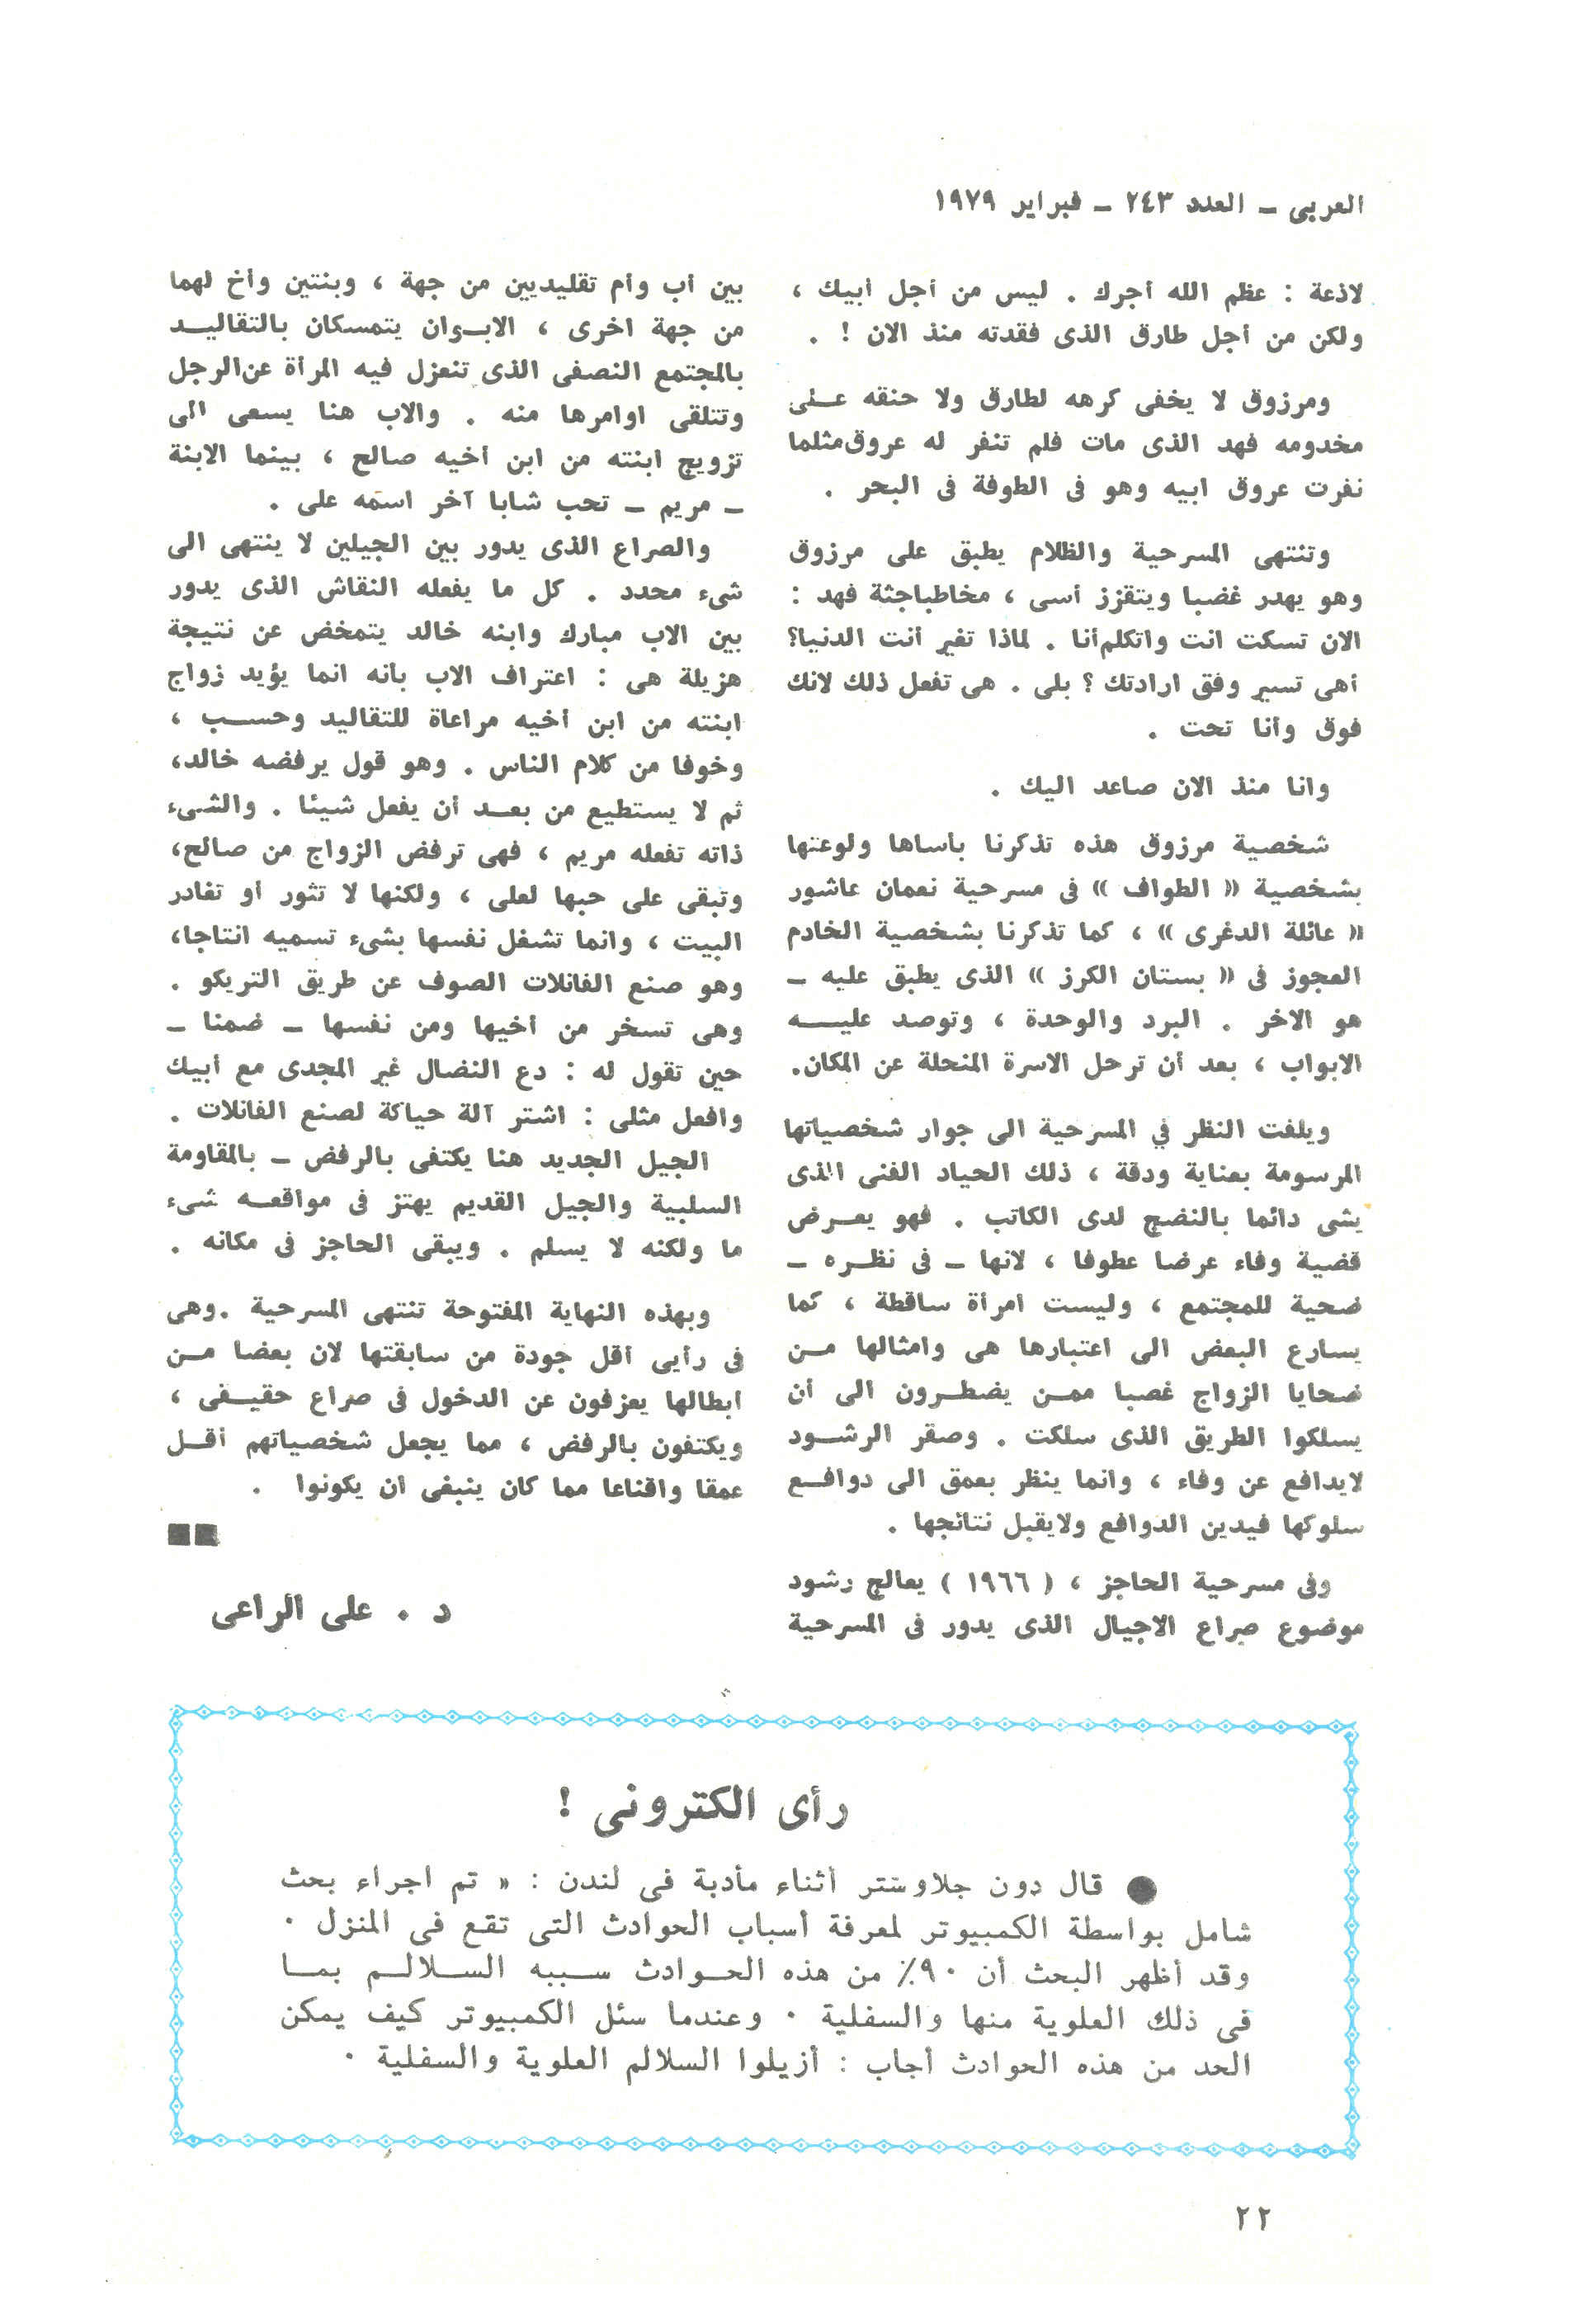 العربى – العدد ٢٤٣ – فبراير ١٩٧٩
لاذعة : عظم الله أجرك . ليس من أجل أبيك ،
ولكن من أجل طارق الذى فقدته منذ الان ! .
ومرزوق لا يخفى كرهه لطارق ولا حنقه على
مخدومه فهد الذى مات فلم تنفر له عروق مثلما
نفرت عروق ابيه وهو فى الطوفة فى البحر .
وتنتهى المسرحية والظلام يطبق على مرزوق
وهو يهدر غضبا ويتقزز أسى ، مخاطبا جثة فهد :
الان تسكت انت واتكلم أنا . لماذا تغير أنت الدنيا؟
أهى تسير وفق ارادتك ؟ بلى . هى تفعل ذلك لانك
فوق وأنا تحت .
وانا منذ الان صاعد اليك .
شخصية مرزوق هذه تذكرنا بأساها ولوعتها
بشخصية « الطواف » فى مسرحية نعمان عاشور
« عائلة الدغرى » ، كما تذكرنا بشخصية الخادم
العجوز فى « بستان الكرز » الذى يطبق عليه –
هو الاخر . البرد والوحدة ، وتوصد عليه
الابواب ، بعد أن ترحل الاسرة المنحلة عن المكان.
ويلفت النظر في المسرحية الى جوار شخصياتها
المرسومة بعناية ودقة ، ذلك الحياد الفنى الذى
يشى دائما بالنضج لدى الكاتب . فهو يعرض
قضية وفاء عرضا عطوفا ، لانها – فى نظره –
ضحية للمجتمع ، وليست امرأة ساقطة ، كما
يسارع البعض الى اعتبارها هى وامثالها من
ضحايا الزواج غصبا ممن يضطرون الى أن
يسلكوا الطريق الذى سلكت . وصقر الرشود
لايدافع عن وفاء ، وانما ينظر بعمق الى دوافع
سلوكها فيدين الدوافع ولايقبل نتائجها .
وفى مسرحية الحاجز ، ( ١٩٦٦ ) يعالج رشود
موضوع صراع الاجيال الذى يدور فى المسرحية
بين أب وأم تقليديين من جهة ، وبنتين وأخ لهما
من جهة اخرى ، الابوان يتمسكان بالتقاليد
بالمجتمع النصفى الذى تنعزل فيه المرأة عن الرجل
وتتلقى اوامرها منه . والاب هنا يسعى الى
تزويج ابنته من ابن أخيه صالح ، بينما الابنة
– مريم – تحب شابا آخر اسمه على .
والصراع الذى يدور بين الجيلين لا ينتهى الى
شىء محدد . كل ما يفعله النقاش الذى يدور
بين الاب مبارك وابنه خالد يتمخض عن نتيجة
هزيلة هى : اعتراف الاب بأنه انما يؤيد زواج
ابنته من ابن أخيه مراعاة للتقاليد وحسب ،
وخوفا من كلام الناس . وهو قول يرفضه خالد،
ثم لا يستطيع من بعد أن يفعل شيئا . والشىء
ذاته تفعله مريم ، فهى ترفض الزواج من صالح،
وتبقى على حبها لعلى ، ولكنها لا تثور أو تغادر
البيت ، وانما تشغل نفسها بشىء تسميه انتاجا،
وهو صنع الفانلات الصوف عن طريق التريكو .
وهى تسخر من أخيها ومن نفسها – ضمنا –
حين تقول له : دع النضال غير المجدى مع أبيك
وافعل مثلى : اشتر آلة حياكة لصنع الفانلات .
الجيل الجديد هنا يكتفى بالرفض – بالمقاومة
السلبية والجيل القديم يهتز فى مواقعه شىء
ما ولكنه لا يسلم . ويبقى الحاجز فى مكانه .
وبهذه النهاية المفتوحة تنتهى المسرحية .وهى
فى رأيى أقل جودة من سابقتها لان بعضا من
ابطالها يعزفون عن الدخول فى صراع حقيقى ،
ويكتفون بالرفض ، مما يجعل شخصياتهم أقل
عمقا واقناعا مما كان ينبغى ان يكونوا .
د . على الراعى
رأى الكترونى !
● قال دون جلاوستر أثناء مأدبة فى لندن : « تم اجراء بحث
شامل بواسطة الكمبيوتر لمعرفة أسباب الحوادث التى تقع فى المنزل .
وقد أظهر البحث أن ٩٠٪ من هذه الحوادث سببه السلالم بما
فى ذلك العلوية منها والسفلية . وعندما سئل الكمبيوتر كيف يمكن
الحد من هذه الحوادث أجاب : أزيلوا السلالم العلوية والسفلية .
٢٢